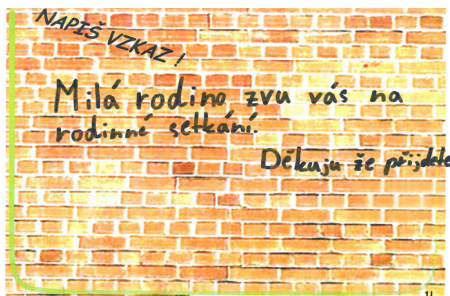 NAPIŠ VZKAZ !
Milá rodino zvu vás na
rodinné setkání.
Děkuju že přijdete